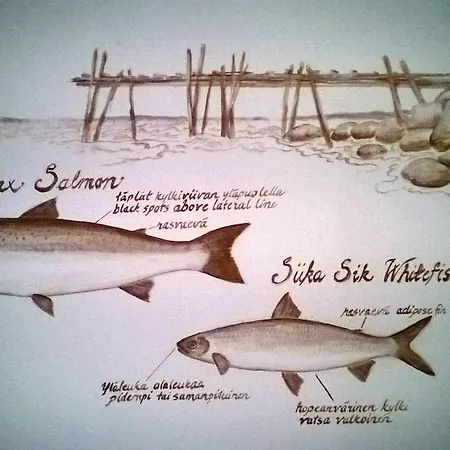 ax Salmon
täplät kylkiviivan yläpuolella
black spots above lateral line
rasvaevä
Siika Sik Whitefis
rasvaevä adipose fin
Yläleuka alaleukaa
pidempi tai samanpituinen
hopeanvärinen kylki
vatsa valkoinen